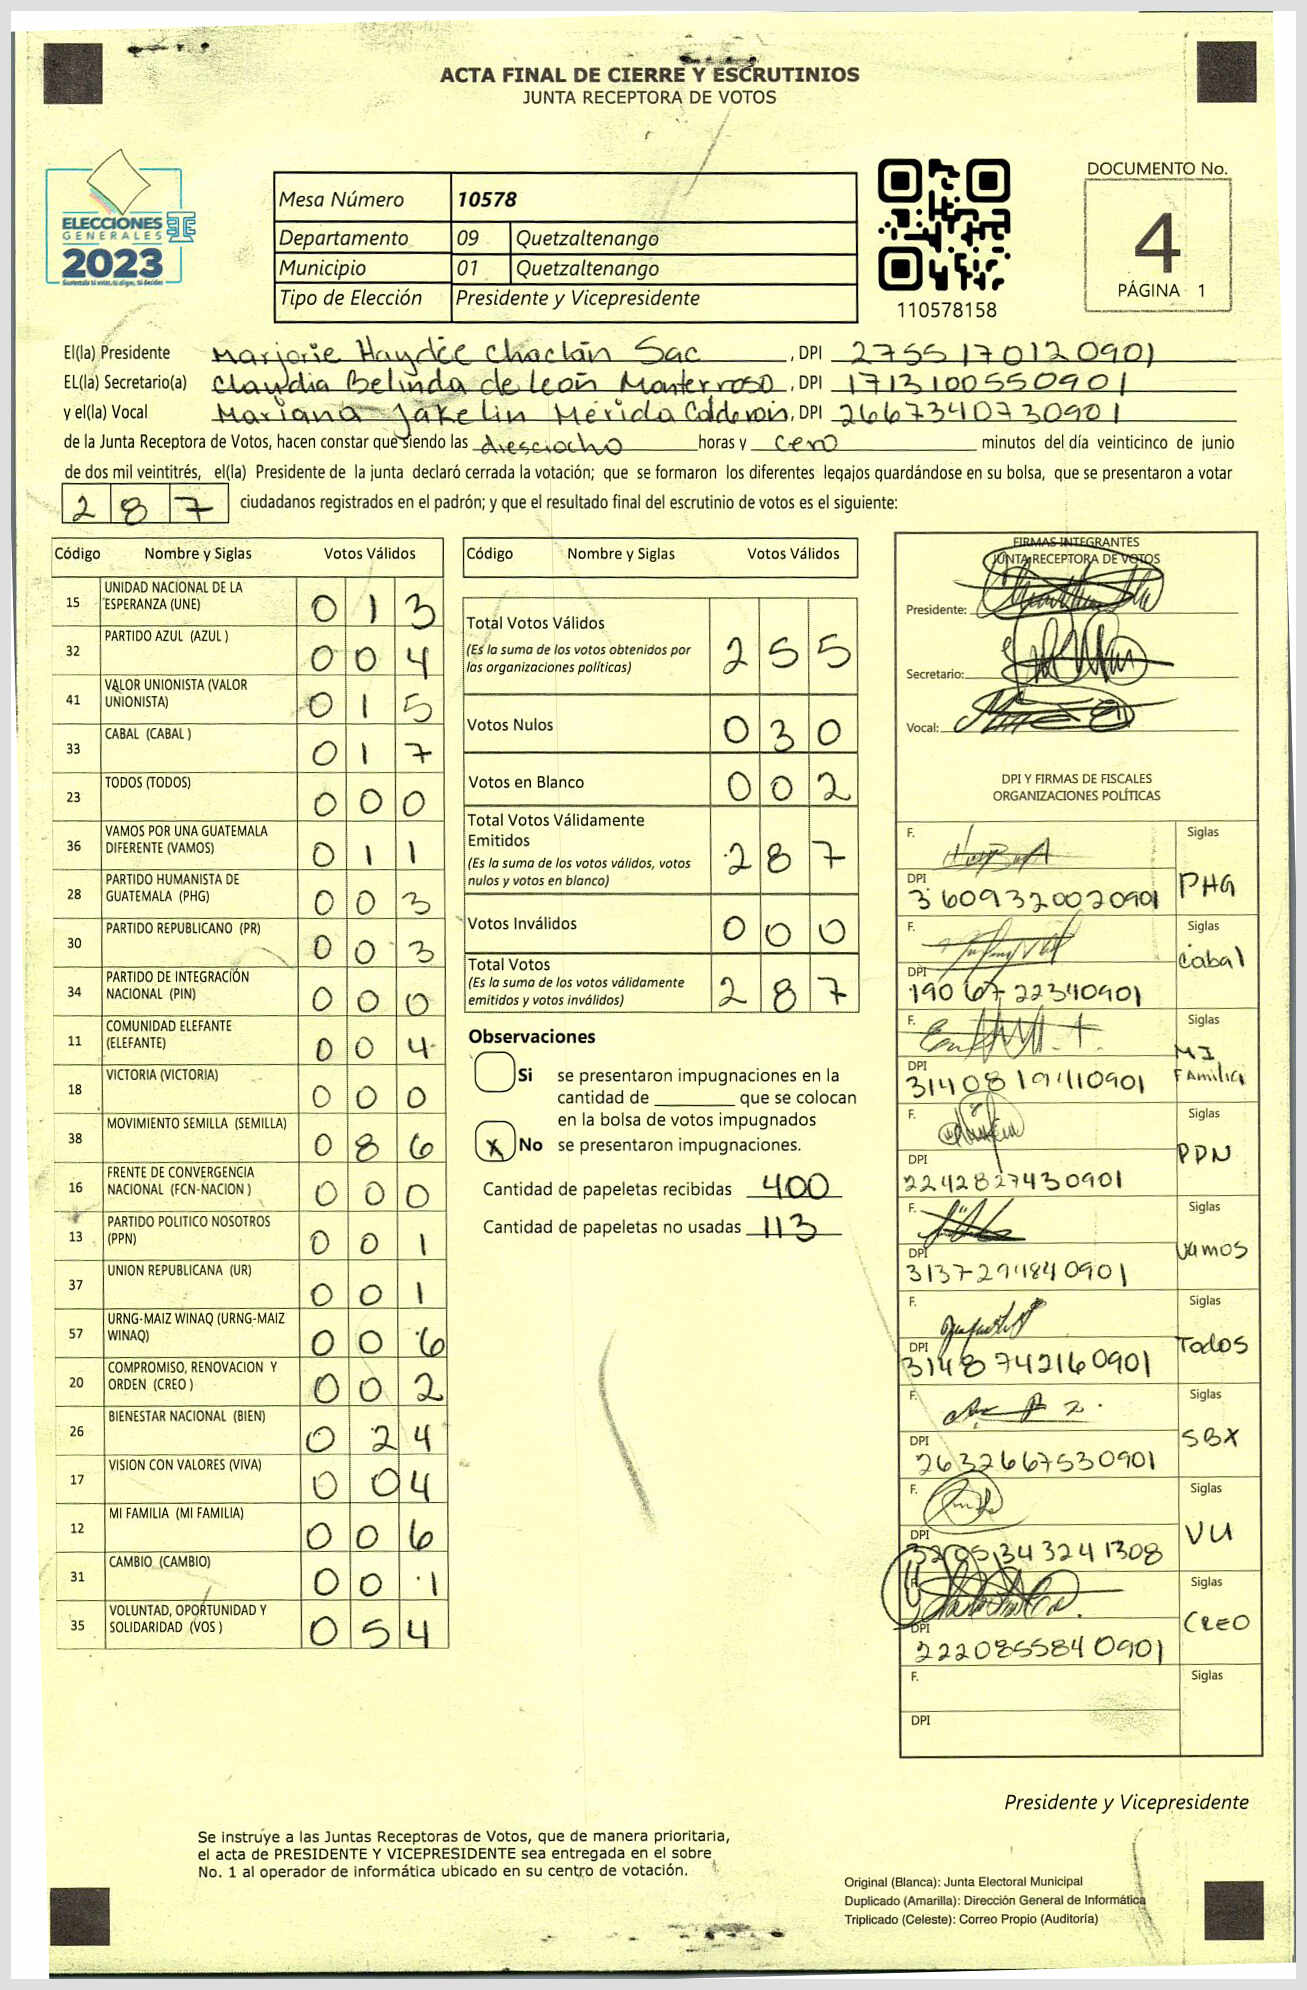 ACTA FINAL DE CIERRE Y ESCRUTINIOS
JUNTA RECEPTORA DE VOTOS
ELECCIONES
GENERALES
2023
Mesa Número 10578
Departamento 09 Quetzaltenango
Municipio 01 Quetzaltenango
Tipo de Elección Presidente y Vicepresidente
110578158
DOCUMENTO No.
4
PÁGINA 1
El(la) Presidente Marjorie Haydée Chaclán Sac, DPI 2755170120901
EL(la) Secretario(a) Claudia Belinda de León Monterroso, DPI 1713100550901
y el(la) Vocal Mariana Jakelin Mérida Calderón, DPI 2667340730901
de la Junta Receptora de Votos, hacen constar que siendo las diesciocho horas y cero minutos del día veinticinco de junio
de dos mil veintitrés, el(la) Presidente de la junta declaró cerrada la votación; que se formaron los diferentes legajos guardándose en su bolsa, que se presentaron a votar
287 ciudadanos registrados en el padrón; y que el resultado final del escrutinio de votos es el siguiente:
Código Nombre y Siglas Votos Válidos
15 UNIDAD NACIONAL DE LA ESPERANZA (UNE) 013
32 PARTIDO AZUL (AZUL ) 004
41 VALOR UNIONISTA (VALOR UNIONISTA) 015
33 CABAL (CABAL ) 017
23 TODOS (TODOS) 000
36 VAMOS POR UNA GUATEMALA DIFERENTE (VAMOS) 011
28 PARTIDO HUMANISTA DE GUATEMALA (PHG) 003
30 PARTIDO REPUBLICANO (PR) 003
34 PARTIDO DE INTEGRACIÓN NACIONAL (PIN) 000
11 COMUNIDAD ELEFANTE (ELEFANTE) 004
18 VICTORIA (VICTORIA) 000
38 MOVIMIENTO SEMILLA (SEMILLA) 086
16 FRENTE DE CONVERGENCIA NACIONAL (FCN-NACION ) 000
13 PARTIDO POLITICO NOSOTROS (PPN) 001
37 UNION REPUBLICANA (UR) 001
57 URNG-MAIZ WINAQ (URNG-MAIZ WINAQ) 006
20 COMPROMISO, RENOVACION Y ORDEN (CREO ) 002
26 BIENESTAR NACIONAL (BIEN) 024
17 VISION CON VALORES (VIVA) 004
12 MI FAMILIA (MI FAMILIA) 006
31 CAMBIO (CAMBIO) 001
35 VOLUNTAD, OPORTUNIDAD Y SOLIDARIDAD (VOS ) 054
Código Nombre y Siglas Votos Válidos
Total Votos Válidos 255
(Es la suma de los votos obtenidos por
las organizaciones políticas)
Votos Nulos 030
Votos en Blanco 002
Total Votos Válidamente
Emitidos 287
(Es la suma de los votos válidos, votos
nulos y votos en blanco)
Votos Inválidos 000
Total Votos 287
(Es la suma de los votos válidamente
emitidos y votos inválidos)
Observaciones
Si se presentaron impugnaciones en la
cantidad de ________ que se colocan
en la bolsa de votos impugnados
X No se presentaron impugnaciones.
Cantidad de papeletas recibidas 400
Cantidad de papeletas no usadas 113
FIRMAS INTEGRANTES
JUNTA RECEPTORA DE VOTOS
Presidente:
Secretario:
Vocal:
DPI Y FIRMAS DE FISCALES
ORGANIZACIONES POLÍTICAS
F. Siglas PHG
DPI 3609320020901
F. Siglas Cabal
DPI 1906722340901
F. Siglas MI Familia
DPI
F. Siglas PPN
DPI 2242827430901
F. Siglas Vamos
DPI
F. Siglas Todos
DPI 3148742160901
F. Siglas SBX
DPI 2632667530901
F. Siglas VU
DPI 3205343241308
F. Siglas CREO
DPI 2220855840901
F. Siglas
DPI
Presidente y Vicepresidente
Se instruye a las Juntas Receptoras de Votos, que de manera prioritaria,
el acta de PRESIDENTE Y VICEPRESIDENTE sea entregada en el sobre
No. 1 al operador de informática ubicado en su centro de votación.
Original (Blanca): Junta Electoral Municipal
Duplicado (Amarilla): Dirección General de Informática
Triplicado (Celeste): Correo Propio (Auditoría)